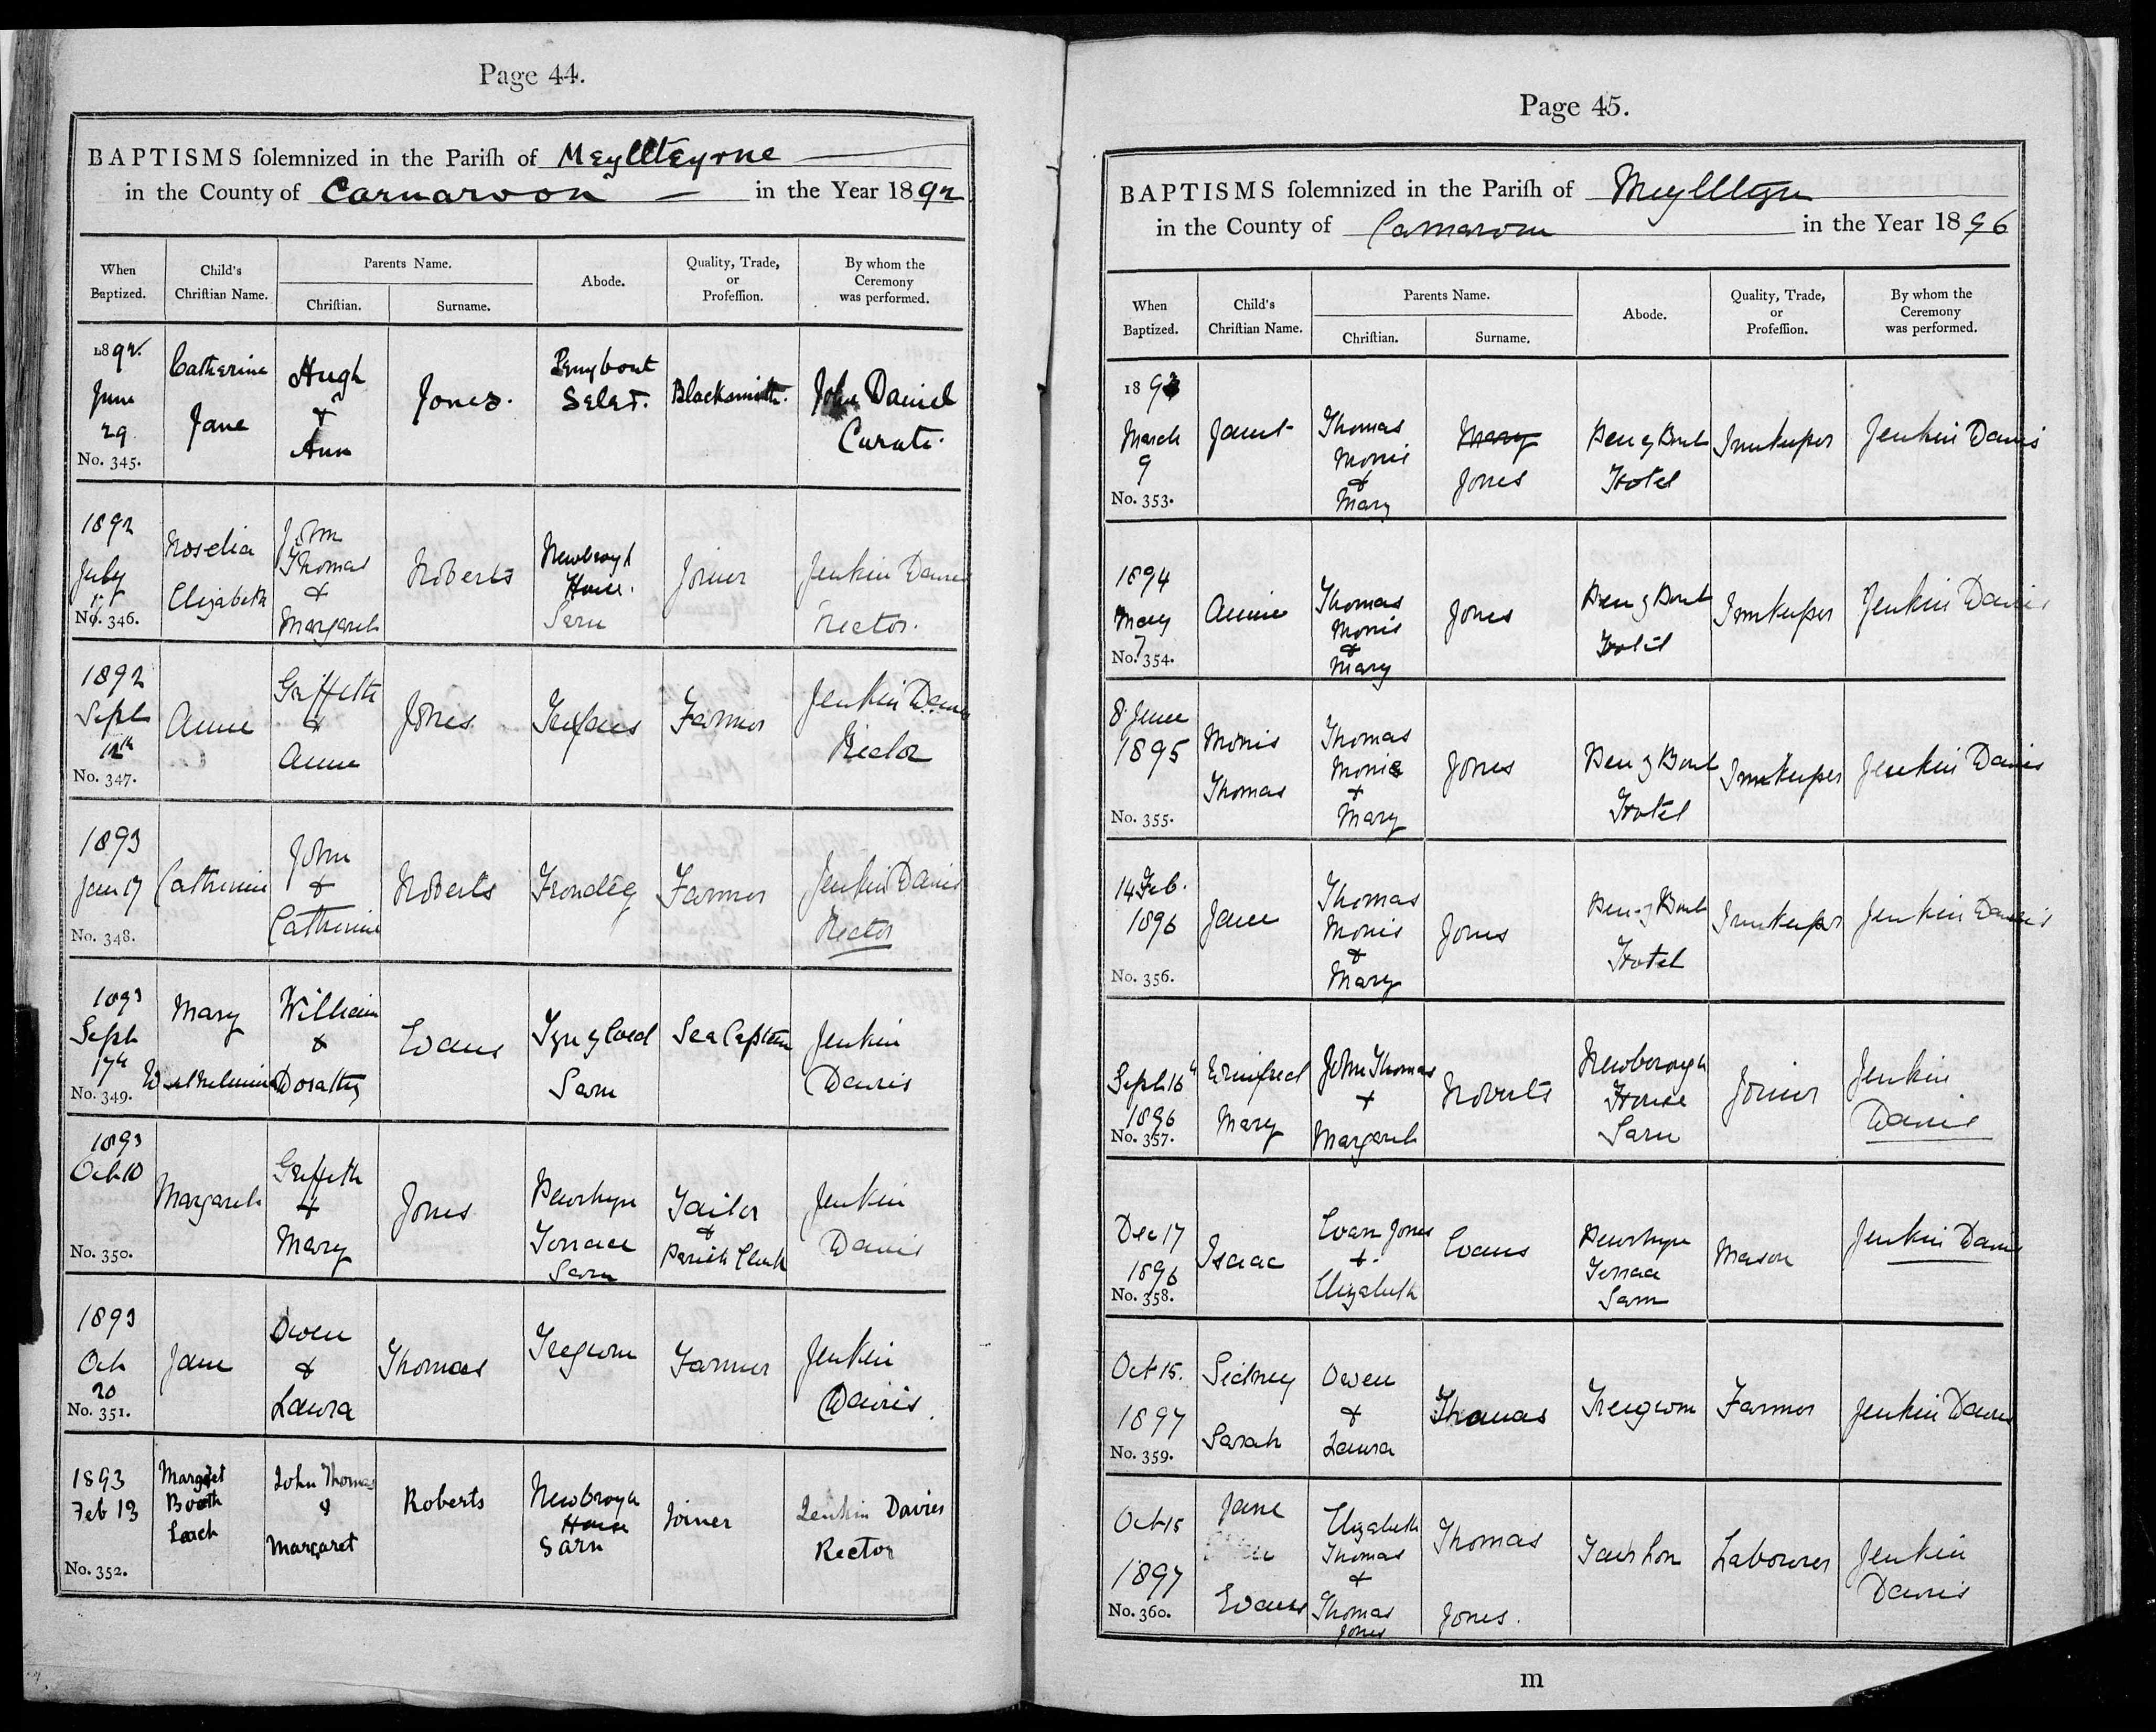 Page 44.
BAPTISMS ſolemnized in the Pariſh of Meyllteyrne
in the County of Carnarvon in the Year 1892
When Baptized. Child's Chriſtian Name. Parents Name. Chriſtian. Surname. Abode. Quality, Trade, or Profeſſion. By whom the Ceremony was performed.
1892. June 29 No. 345.
Catherine Jane
Hugh & Ann
Jones.
Penybont
Blacksmith.
John Daniel Curate.
1892 July No. 346.
Roselia Elizabeth
John Thomas & Margaret
Roberts
Newbrogh House. Sarn
Joiner
Jenkin Davies Rector.
1892 Sept 12th No. 347.
Anne
Griffith & Anne
Jones
Trefaes
Farmer
Jenkin Davies Rector
1893 Jan 17 No. 348.
Catherine
John & Catherine
Roberts
Frondeg
Farmer
Jenkin Davies Rector
1893 Sept 17th No. 349.
Mary Wilhelmina
William & Dorathy
Evans
Tyn y Coed Sarn
Sea Captain
Jenkin Davies
1893 Oct 10 No. 350.
Margaret
Griffith & Mary
Jones
Penrhyn Terrace Sarn
Tailor & Parish Clerk
Jenkin Davies
1893 Oct 20 No. 351.
Jane
Owen & Laura
Thomas
Tregwm
Farmer
Jenkin Davies.
1893 Feb 13 No. 352.
Margret Booth Leach
John Thomas & Margaret
Roberts
Newbrogh House Sarn
Joiner
Jenkin Davies Rector
Page 45.
BAPTISMS ſolemnized in the Pariſh of
in the County of Carnarvon in the Year 1896
When Baptized. Child's Chriſtian Name. Parents Name. Chriſtian. Surname. Abode. Quality, Trade, or Profeſſion. By whom the Ceremony was performed.
1893 March 9 No. 353.
Janet
Thomas Morris & Mary
Mary Jones
Pen y Bont Hotel
Innkeeper
Jenkin Davies
1894 May 7 No. 354.
Annie
Thomas Morris & Mary
Jones
Pen y Bont Hotel
Innkeeper
Jenkin Davies
8 June 1895 No. 355.
Morris Thomas
Thomas Morris & Mary
Jones
Pen y Bont Hotel
Innkeeper
Jenkin Davies
14 Feb. 1896 No. 356.
Jane
Thomas Morris & Mary
Jones
Pen-y Bont Hotel
Innkeeper
Jenkin Davies
Sept 16th 1896 No. 357.
Winifred Mary
John Thomas + Margaret
Roberts
Newborough House Sarn
Joiner
Jenkin Davies
Dec 17 1896 No. 358.
Isaac
Evan Jones + Elizabeth
Evans
Penrhyn Terrace Sarn
Mason
Jenkin Davies
Oct 15. 1897 No. 359.
Sidney Sarah
Owen & Laura
Thomas
Tregwm
Farmer
Jenkin Davies
Oct 15 1897 No. 360.
Jane Evans
Elizabeth Thomas & Thomas Jones
Thomas Jones.
Labourer
Jenkin Davies
m